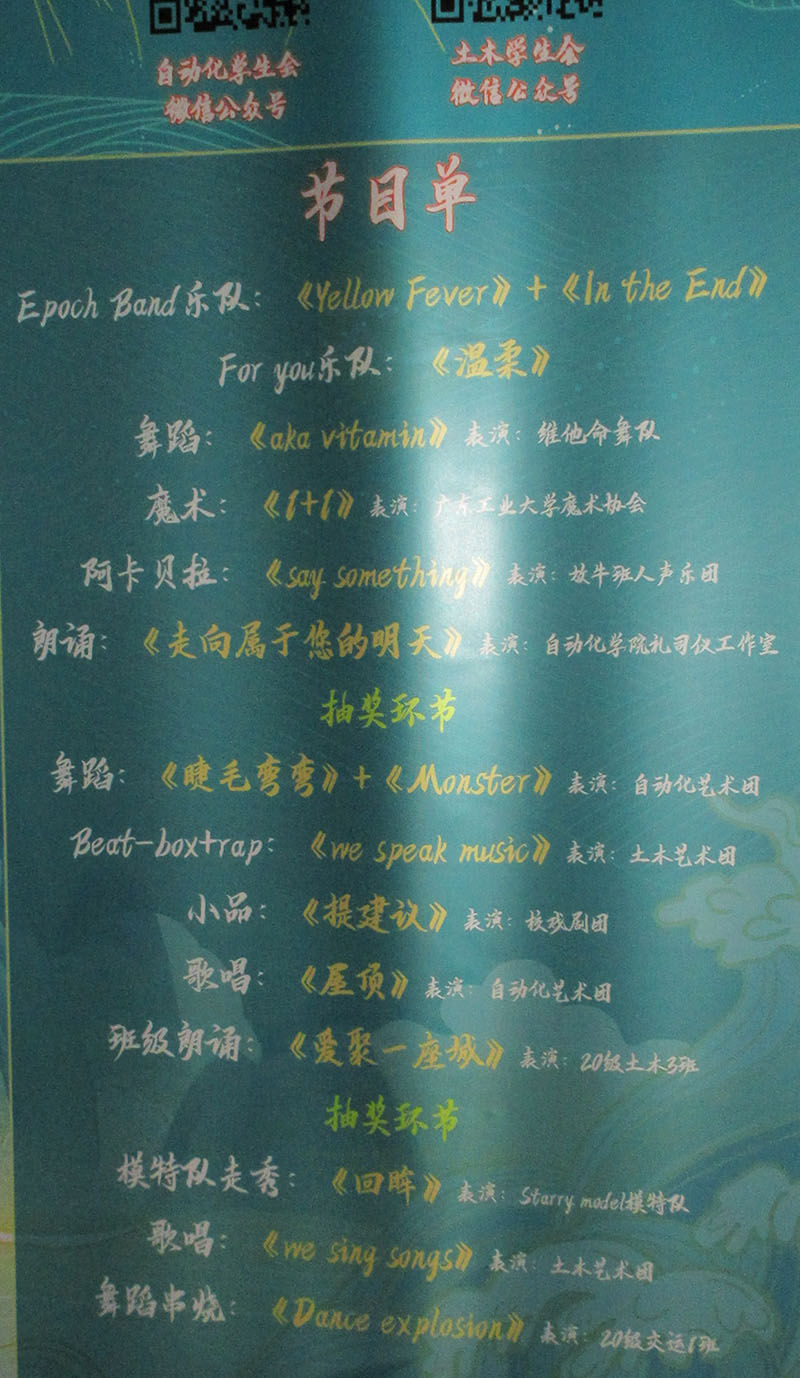 自动化学生会
微信公众号
土木学生会
微信公众号
节目单
Epoch Band乐队：《Yellow Fever》+《In the End》
For you乐队：《温柔》
舞蹈：《aka vitamin》 表演：维他命舞队
魔术：《1+1》 表演：广东工业大学魔术协会
阿卡贝拉：《say something》 表演：放牛班人声乐团
朗诵：《走向属于您的明天》 表演：自动化学院礼司仪工作室
抽奖环节
舞蹈：《睫毛弯弯》+《Monster》 表演：自动化艺术团
Beat-box+rap：《we speak music》 表演：土木艺术团
小品：《提建议》 表演：校戏剧团
歌唱：《屋顶》 表演：自动化艺术团
班级朗诵：《爱聚一座城》 表演：20级土木3班
抽奖环节
模特队走秀：《回眸》 表演：Starry model模特队
歌唱：《we sing songs》 表演：土木艺术团
舞蹈串烧：《Dance explosion》 表演：20级交运1班